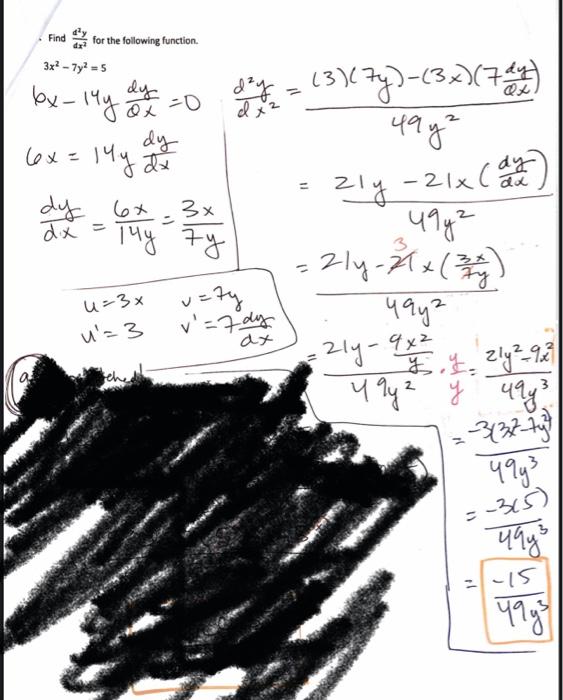 . Find d²y/dx² for the following function.
3x² – 7y² = 5
6x - 14y dy/dx = 0
6x = 14y dy/dx
dy/dx = 6x/14y = 3x/7y
u = 3x v = 7y
u' = 3 v' = 7 dy/dx
d²y/dx² = (3)(7y) - (3x)(7 dy/dx) / 49y²
= 21y - 21x (dy/dx) / 49y²
= 21y - 21 3 x (3x/7y) / 49y²
= 21y - 9x²/y / 49y² · y/y = 21y² - 9x² / 49y³
= -3(3x² - 7y²) / 49y³
= -3(5) / 49y³
= -15 / 49y³